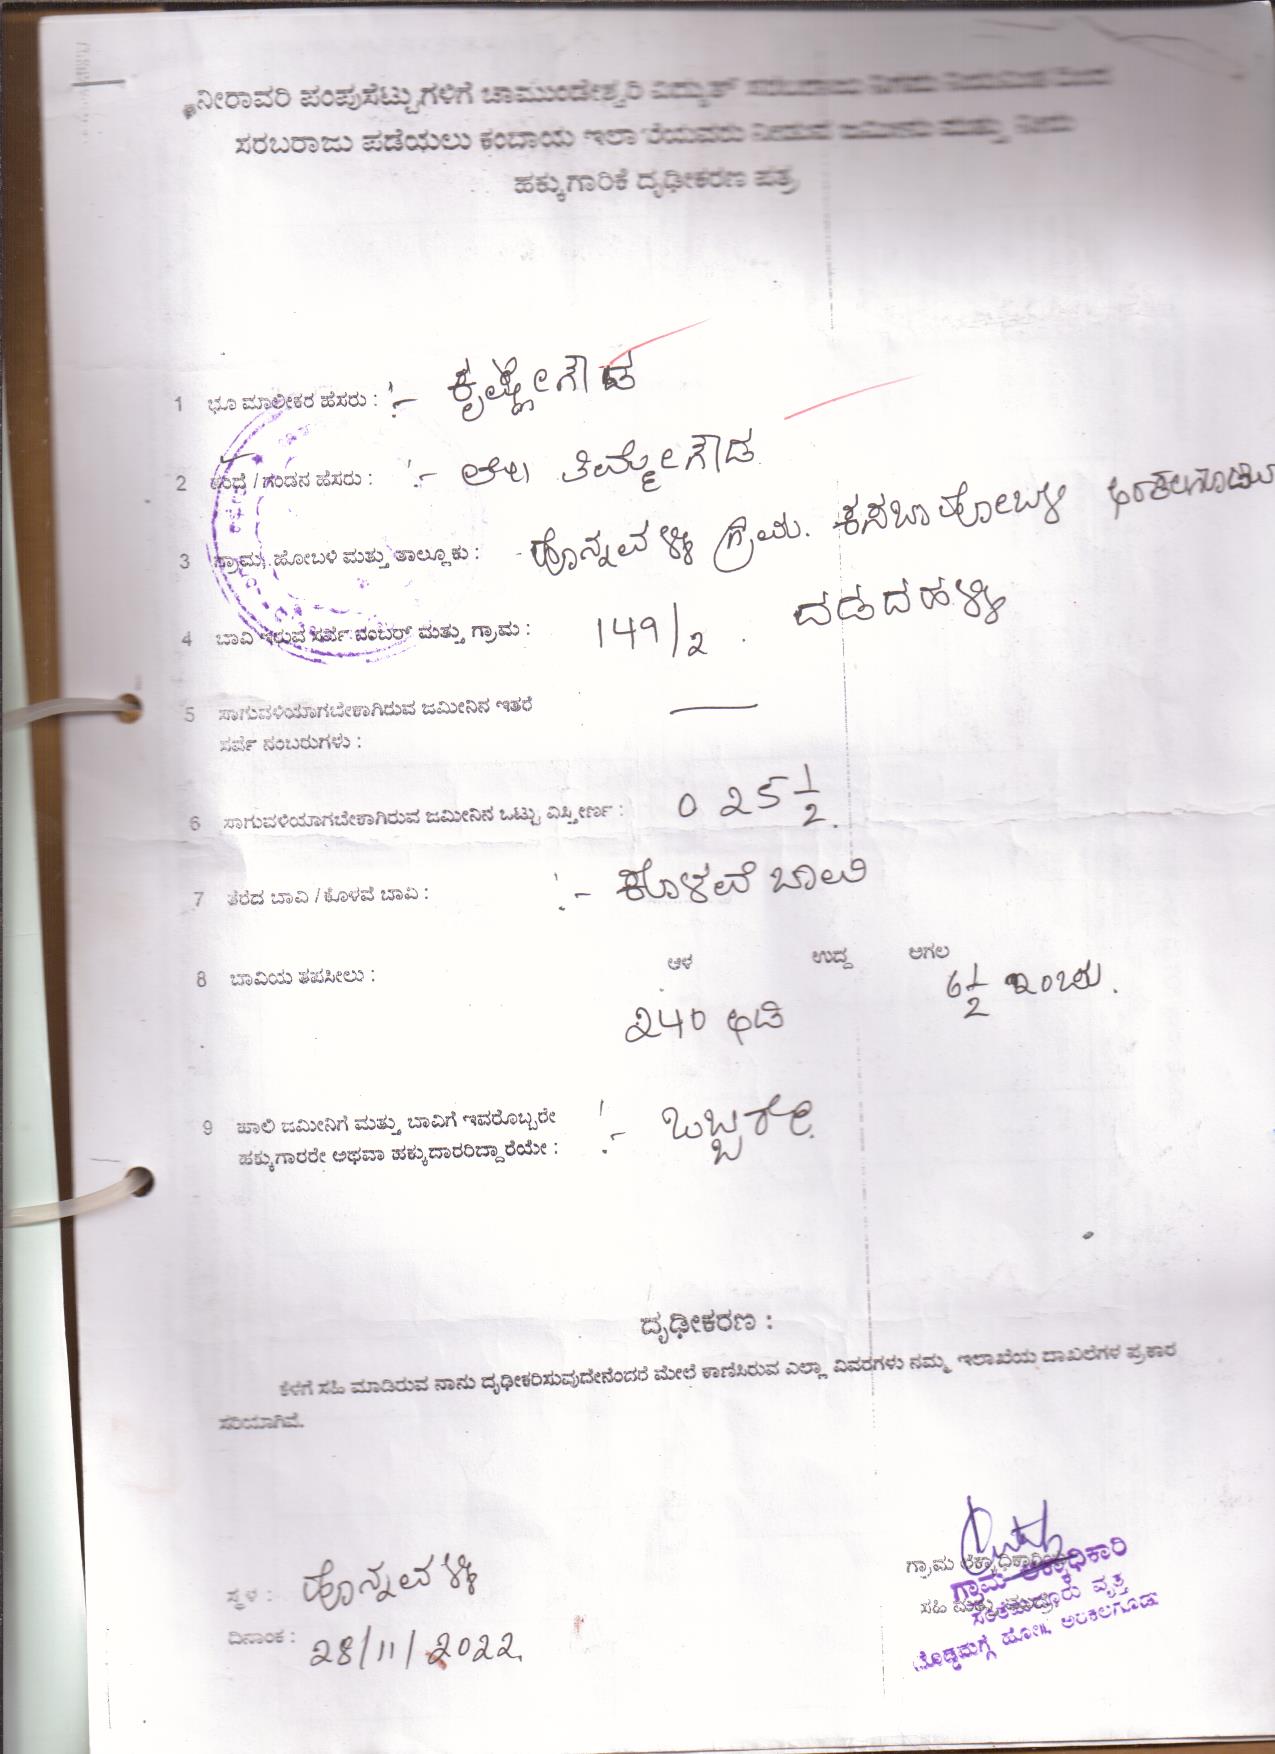 ನೀರಾವರಿ ಪಂಪುಸೆಟ್ಟುಗಳಿಗೆ ಚಾಮುಂಡೇಶ್ವರಿ ವಿದ್ಯುತ್ ಸರಬರಾಜು ನಿಗಮ
ಸರಬರಾಜು ಪಡೆಯಲು ಕಂದಾಯ ಇಲಾಖೆಯವರು ನೀಡುವ ಜಮೀನು ಮತ್ತು ನೀರು
ಹಕ್ಕುಗಾರಿಕೆ ದೃಢೀಕರಣ ಪತ್ರ
1 ಭೂ ಮಾಲೀಕರ ಹೆಸರು : :- ಕೃಷ್ಣೇಗೌಡ
2 ತಂದೆ / ಗಂಡನ ಹೆಸರು : :- ತಿಮ್ಮೇಗೌಡ
3 ಗ್ರಾಮ, ಹೋಬಳಿ ಮತ್ತು ತಾಲ್ಲೂಕು : - ಹೊನ್ನವಳ್ಳಿ ಗ್ರಾಮ. ಕಸಬಾ ಹೋಬಳಿ
4 ಬಾವಿ ಇರುವ ಸರ್ವೆ ನಂಬರ್ ಮತ್ತು ಗ್ರಾಮ : 149/2 . ದಡದಹಳ್ಳಿ
5 ಸಾಗುವಳಿಯಾಗಬೇಕಾಗಿರುವ ಜಮೀನಿನ ಇತರೆ
ಸರ್ವೆ ನಂಬರುಗಳು : —
6 ಸಾಗುವಳಿಯಾಗಬೇಕಾಗಿರುವ ಜಮೀನಿನ ಒಟ್ಟು ವಿಸ್ತೀರ್ಣ : 0 25 1/2.
7 ತೆರೆದ ಬಾವಿ / ಕೊಳವೆ ಬಾವಿ : :- ಕೊಳವೆ ಬಾವಿ
8 ಬಾವಿಯ ತಪಸೀಲು : ಆಳ ಉದ್ದ ಅಗಲ
240 ಅಡಿ 6 1/2 ಇಂಚು.
9 ಖಾಲಿ ಜಮೀನಿಗೆ ಮತ್ತು ಬಾವಿಗೆ ಇವರೊಬ್ಬರೇ
ಹಕ್ಕುಗಾರರೇ ಅಥವಾ ಹಕ್ಕುದಾರರಿದ್ದಾರೆಯೇ : :- ಒಬ್ಬರೇ.
ದೃಢೀಕರಣ :
ಕೆಳಗೆ ಸಹಿ ಮಾಡಿರುವ ನಾನು ದೃಢೀಕರಿಸುವುದೇನೆಂದರೆ ಮೇಲೆ ಕಾಣಿಸಿರುವ ಎಲ್ಲಾ ವಿವರಗಳು ನಮ್ಮ ಇಲಾಖೆಯ ದಾಖಲೆಗಳ ಪ್ರಕಾರ
ಸರಿಯಾಗಿವೆ.
ಸ್ಥಳ : ಹೊನ್ನವಳ್ಳಿ
ದಿನಾಂಕ : 28/11/2022
ಗ್ರಾಮ ಲೆಕ್ಕಾಧಿಕಾರಿಯ
ಸಹಿ ಮತ್ತು ಮುದ್ರೆ
ಗ್ರಾಮ ಲೆಕ್ಕಾಧಿಕಾರಿ
ವೃತ್ತ
ದೊಡ್ಡಮಗ್ಗೆ ಹೋ॥, ಅರಕಲಗೂಡು